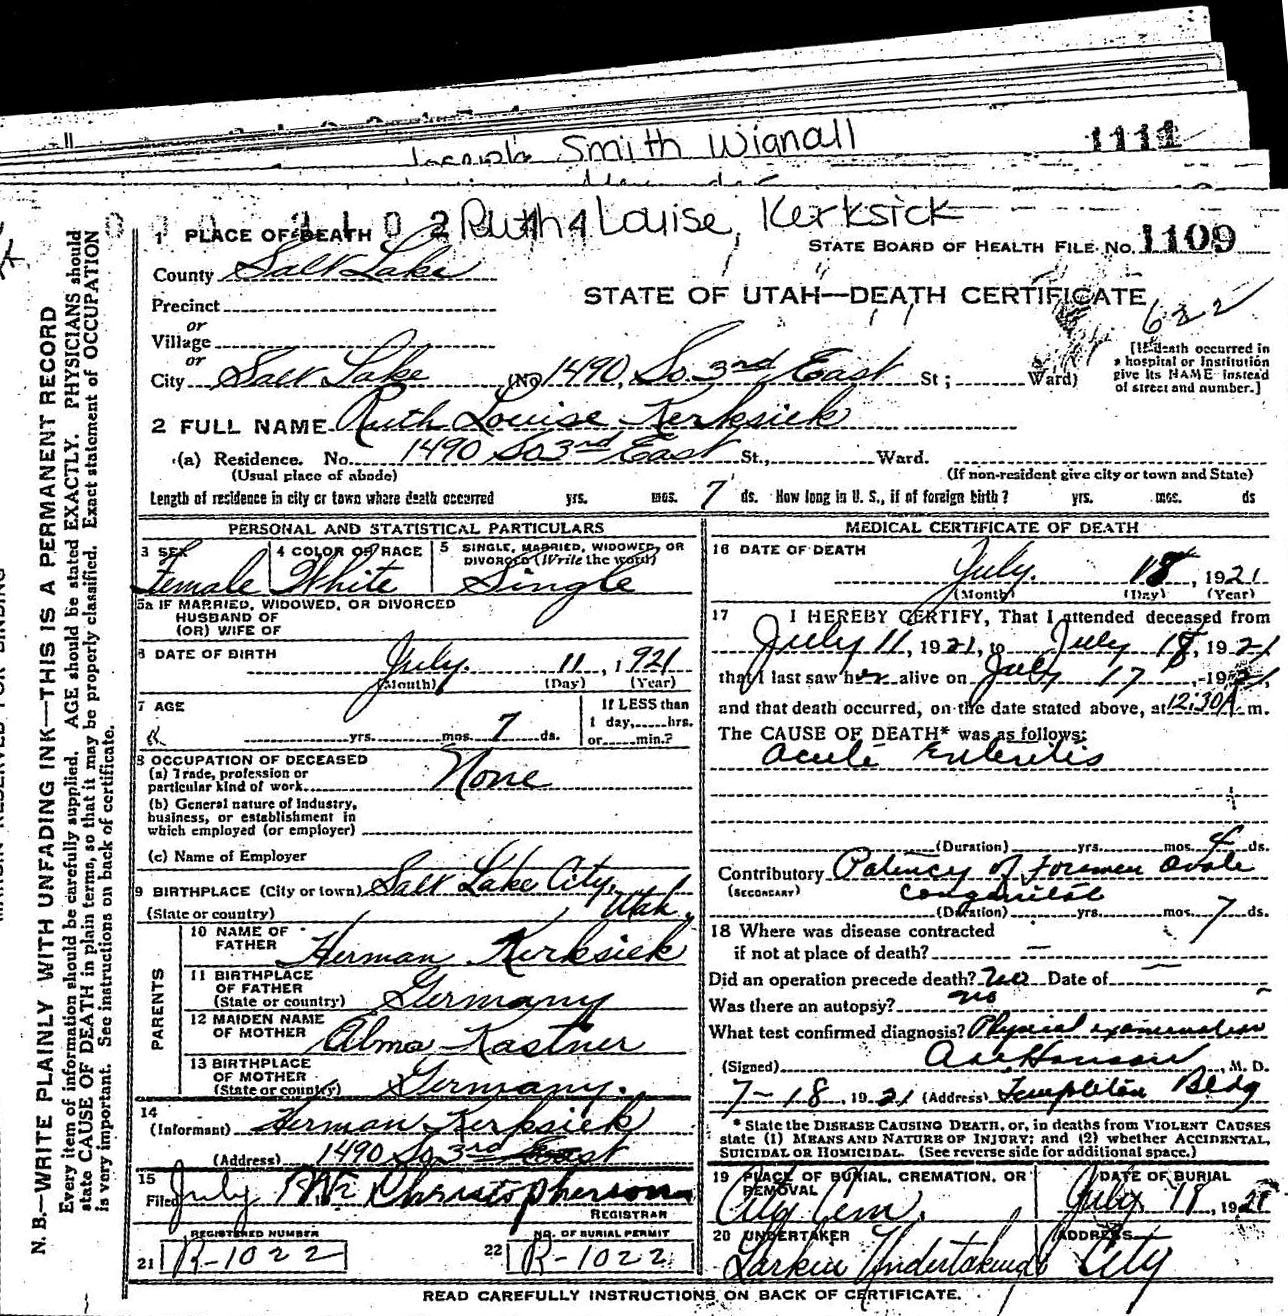 Smith Wignall 1111
Ruth Louise Kerksick
1 PLACE OF DEATH
STATE BOARD OF HEALTH FILE NO. 1109
County Salt Lake
STATE OF UTAH—DEATH CERTIFICATE
622
Precinct
or
Village
or
City Salt Lake (No 1490, So. 3rd East St; Ward)
[If death occurred in
a hospital or Institution
give its NAME instead
of street and number.]
2 FULL NAME Ruth Louise Kerksiek
(a) Residence. No. 1490 So 3rd East St., Ward.
(Usual place of abode) (If non-resident give city or town and State)
Length of residence in city or town where death occurred yrs. mos. 7 ds. How long in U. S., if of foreign birth? yrs. mos. ds
PERSONAL AND STATISTICAL PARTICULARS
3 SEX Female
4 COLOR OR RACE White
5 SINGLE, MARRIED, WIDOWED, OR
DIVORCED (Write the word)
Single
5a IF MARRIED, WIDOWED, OR DIVORCED
HUSBAND OF
(OR) WIFE OF
6 DATE OF BIRTH July. 11, 1921
(Month) (Day) (Year)
7 AGE yrs. mos. 7 ds.
If LESS than
1 day,.....hrs.
or.....min.?
8 OCCUPATION OF DECEASED
(a) Trade, profession or
particular kind of work None
(b) General nature of industry,
business, or establishment in
which employed (or employer)
(c) Name of Employer
9 BIRTHPLACE (City or town) Salt Lake City,
(State or country) Utah.
PARENTS
10 NAME OF
FATHER Herman Kerksiek
11 BIRTHPLACE
OF FATHER
(State or country) Germany
12 MAIDEN NAME
OF MOTHER Alma Kastner
13 BIRTHPLACE
OF MOTHER
(State or country) Germany.
14
(Informant) Herman Kerksiek
(Address) 1490 So 3rd East
15
Filed July Christopherson
REGISTRAR
REGISTERED NUMBER
21 R-1022
NO. OF BURIAL PERMIT
22 R-1022
MEDICAL CERTIFICATE OF DEATH
16 DATE OF DEATH
July. 18, 1921
(Month) (Day) (Year)
17 I HEREBY CERTIFY, That I attended deceased from
July 11, 1921, to July 18, 1921
that I last saw her alive on July 17, 1921,
and that death occurred, on the date stated above, at 12:30 A m.
The CAUSE OF DEATH* was as follows:
Acute Enteritis
(Duration) yrs. mos. 4 ds.
Contributory Patency of Foramen Ovale
(SECONDARY) Congenital
(Duration) yrs. mos. 7 ds.
18 Where was disease contracted
if not at place of death?
Did an operation precede death? No Date of
Was there an autopsy? No
What test confirmed diagnosis? Physical examination
(Signed) M. D.
7-18, 1921 (Address) Templeton Bldg
* State the DISEASE CAUSING DEATH, or, in deaths from VIOLENT CAUSES
state (1) MEANS AND NATURE OF INJURY; and (2) whether ACCIDENTAL,
SUICIDAL OR HOMICIDAL. (See reverse side for additional space.)
19 PLACE OF BURIAL, CREMATION, OR
REMOVAL
City Cem.
DATE OF BURIAL
July. 18, 1921
20 UNDERTAKER
Larkin Undertaking
ADDRESS
City
READ CAREFULLY INSTRUCTIONS ON BACK OF CERTIFICATE.
N. B.—WRITE PLAINLY WITH UNFADING INK—THIS IS A PERMANENT RECORD
Every item of information should be carefully supplied. AGE should be stated EXACTLY. PHYSICIANS should
state CAUSE OF DEATH in plain terms, so that it may be properly classified. Exact statement of OCCUPATION
is very important. See instructions on back of certificate.